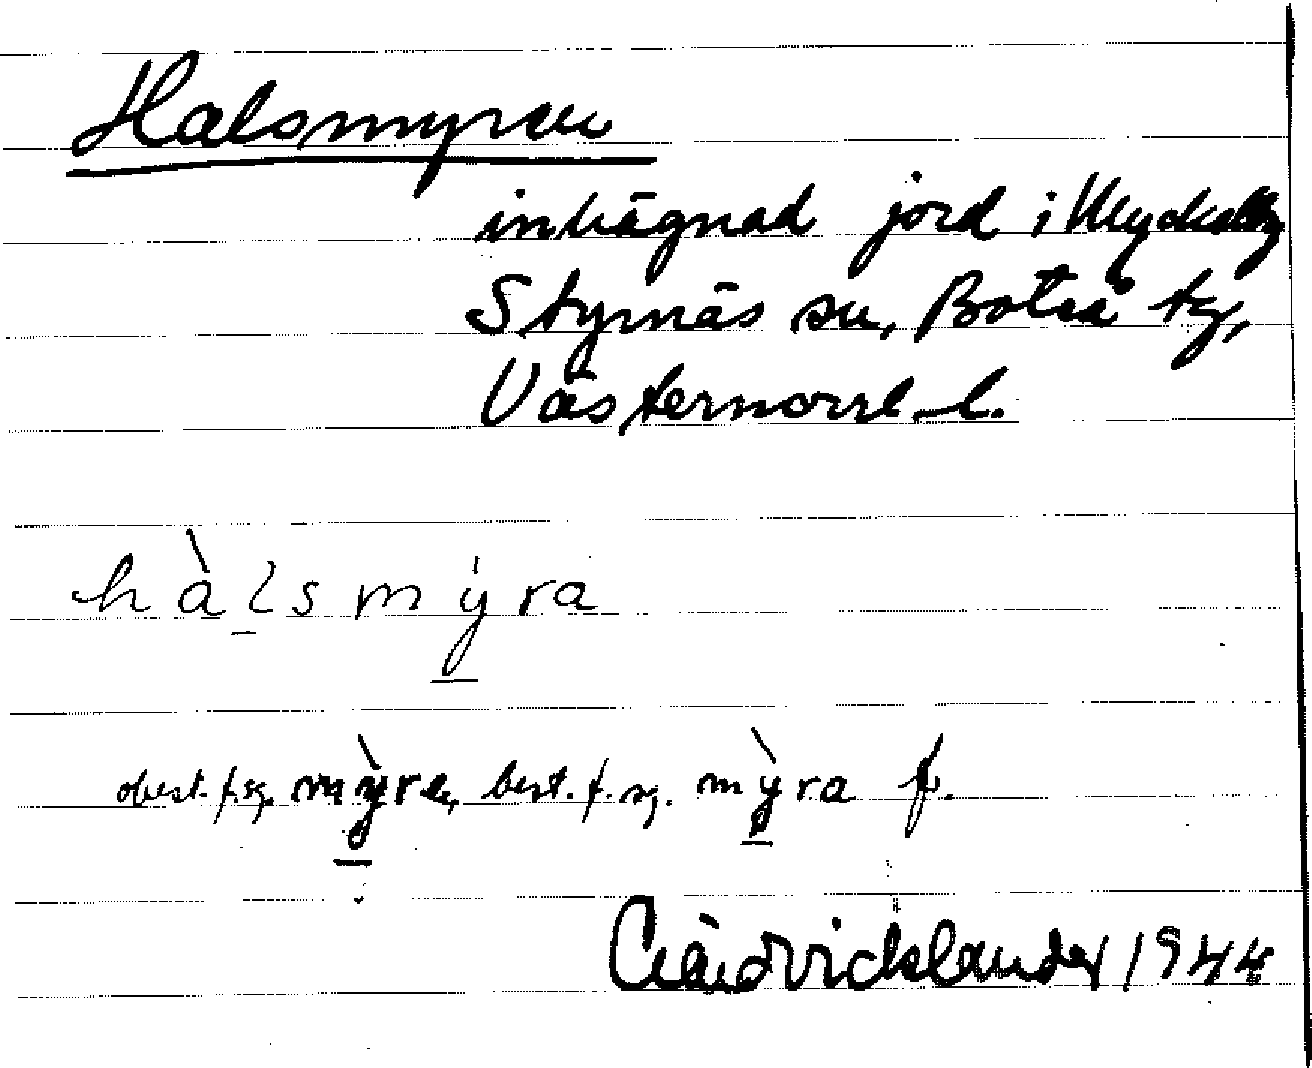 Halsmyren
inhägnad jord i Myckelby
Styrnäs sn, Boteå tg,
Västernorrl. l.
hàlsmýra
obest. f. sg. mỳre, best. f. sg. mỳra f.
1944